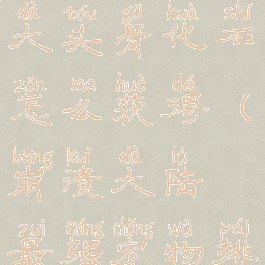 dà tóu gǔ huà shí
大头骨化石
zěn me huò dé
怎么获得（
bēng kuì dà lù
崩溃大陆
zuì qiáng chǒng wù pái
最强宠物排